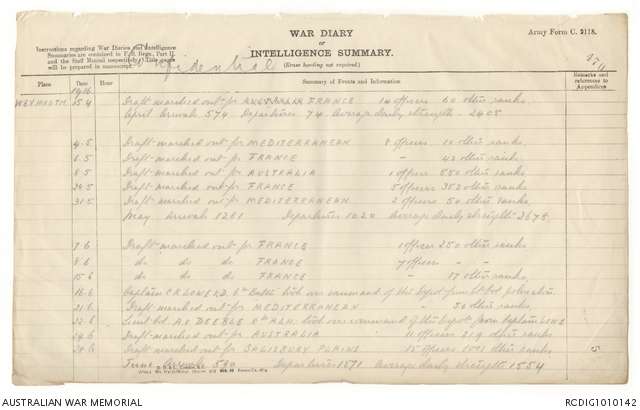 WAR DIARY
or
INTELLIGENCE SUMMARY.
(Erase heading not required.)
Army Form C. 2118.
Instructions regarding War Diaries and Intelligence
Summaries are contained in F. S. Regs., Part II.
and the Staff Manual respectively. Title pages
will be prepared in manuscript.
Confidential
Place Date Hour Summary of Events and Information Remarks and references to Appendices
1916
WEYMOUTH 25.4 Draft marched out for FRANCE 14 officers 60 other ranks
April Arrivals 574 Departures 74 Average daily strength - 2405
4.5 Draft marched out for MEDITERRANEAN 8 officers 10 other ranks
5.5 Draft marched out for FRANCE - 43 other ranks
8.5 Draft marched out for AUSTRALIA 1 officers 550 other ranks
24.5 Draft marched out for FRANCE 5 officers 352 other ranks
31.5 Draft marched out for MEDITERRANEAN 2 officers 50 other ranks
May Arrivals 1261 Departures 1020 Average daily strength 2678
7.6 Draft marched out for FRANCE 1 officers 250 other ranks
8.6 do do do FRANCE 7 officers -
15.6 do do do FRANCE - 17 other ranks
18.6 Captain 6th Battn took over command of this depot from
21.6 Draft marched out for MEDITERRANEAN 30 other ranks
22.6 Lieut Col. A. J. DEEBLE 8th A.L.H. took over command of the depot from Captain
24.6 Draft marched out for AUSTRALIA 11 officers 219 other ranks
28.6 Draft marched out for SALISBURY PLAINS 15 officers 1001 other ranks
June Arrivals 590 Departures 1571 Average daily strength 1554
AUSTRALIAN WAR MEMORIAL
RCDIG1010142